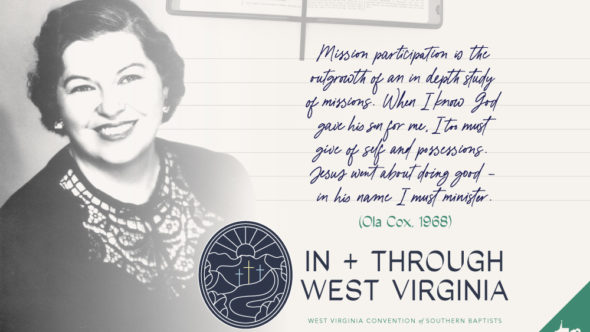 Mission participation is the
outgrowth of an in depth study
of missions. When I know God
gave his son for me, I too must
give of self and possessions.
Jesus went about doing good –
in his name I must minister.
(Ola Cox, 1968)
IN + THROUGH
WEST VIRGINIA
WEST VIRGINIA CONVENTION of SOUTHERN BAPTISTS